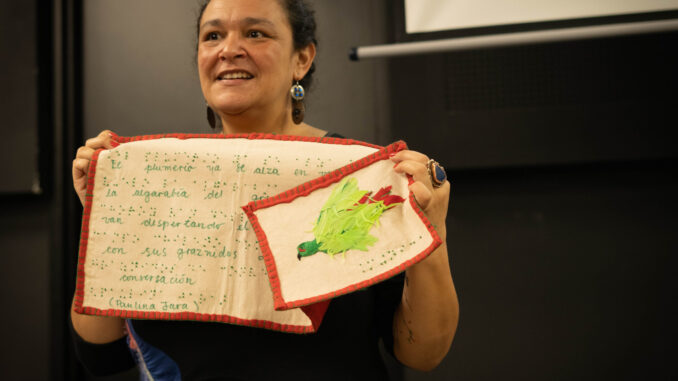 El plumerío ya se alza en v
la algarabía del
van despertando e
con sus graznidos
conversación
(Paulina Jara